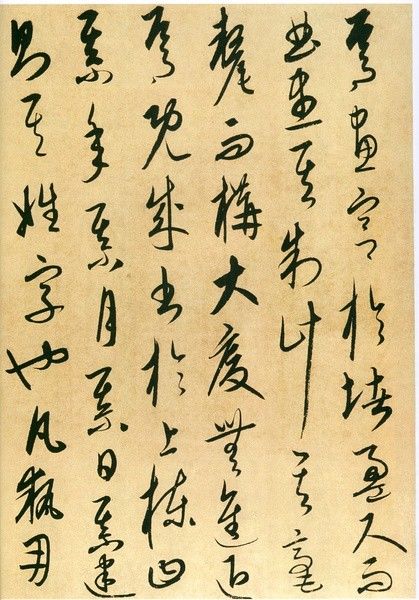 焉畫宮於堵盈尺而
曲盡其制計其毫
釐而構大廈無進退
焉既成書於上棟曰
某年某月某日某建
則其姓字也凡執用